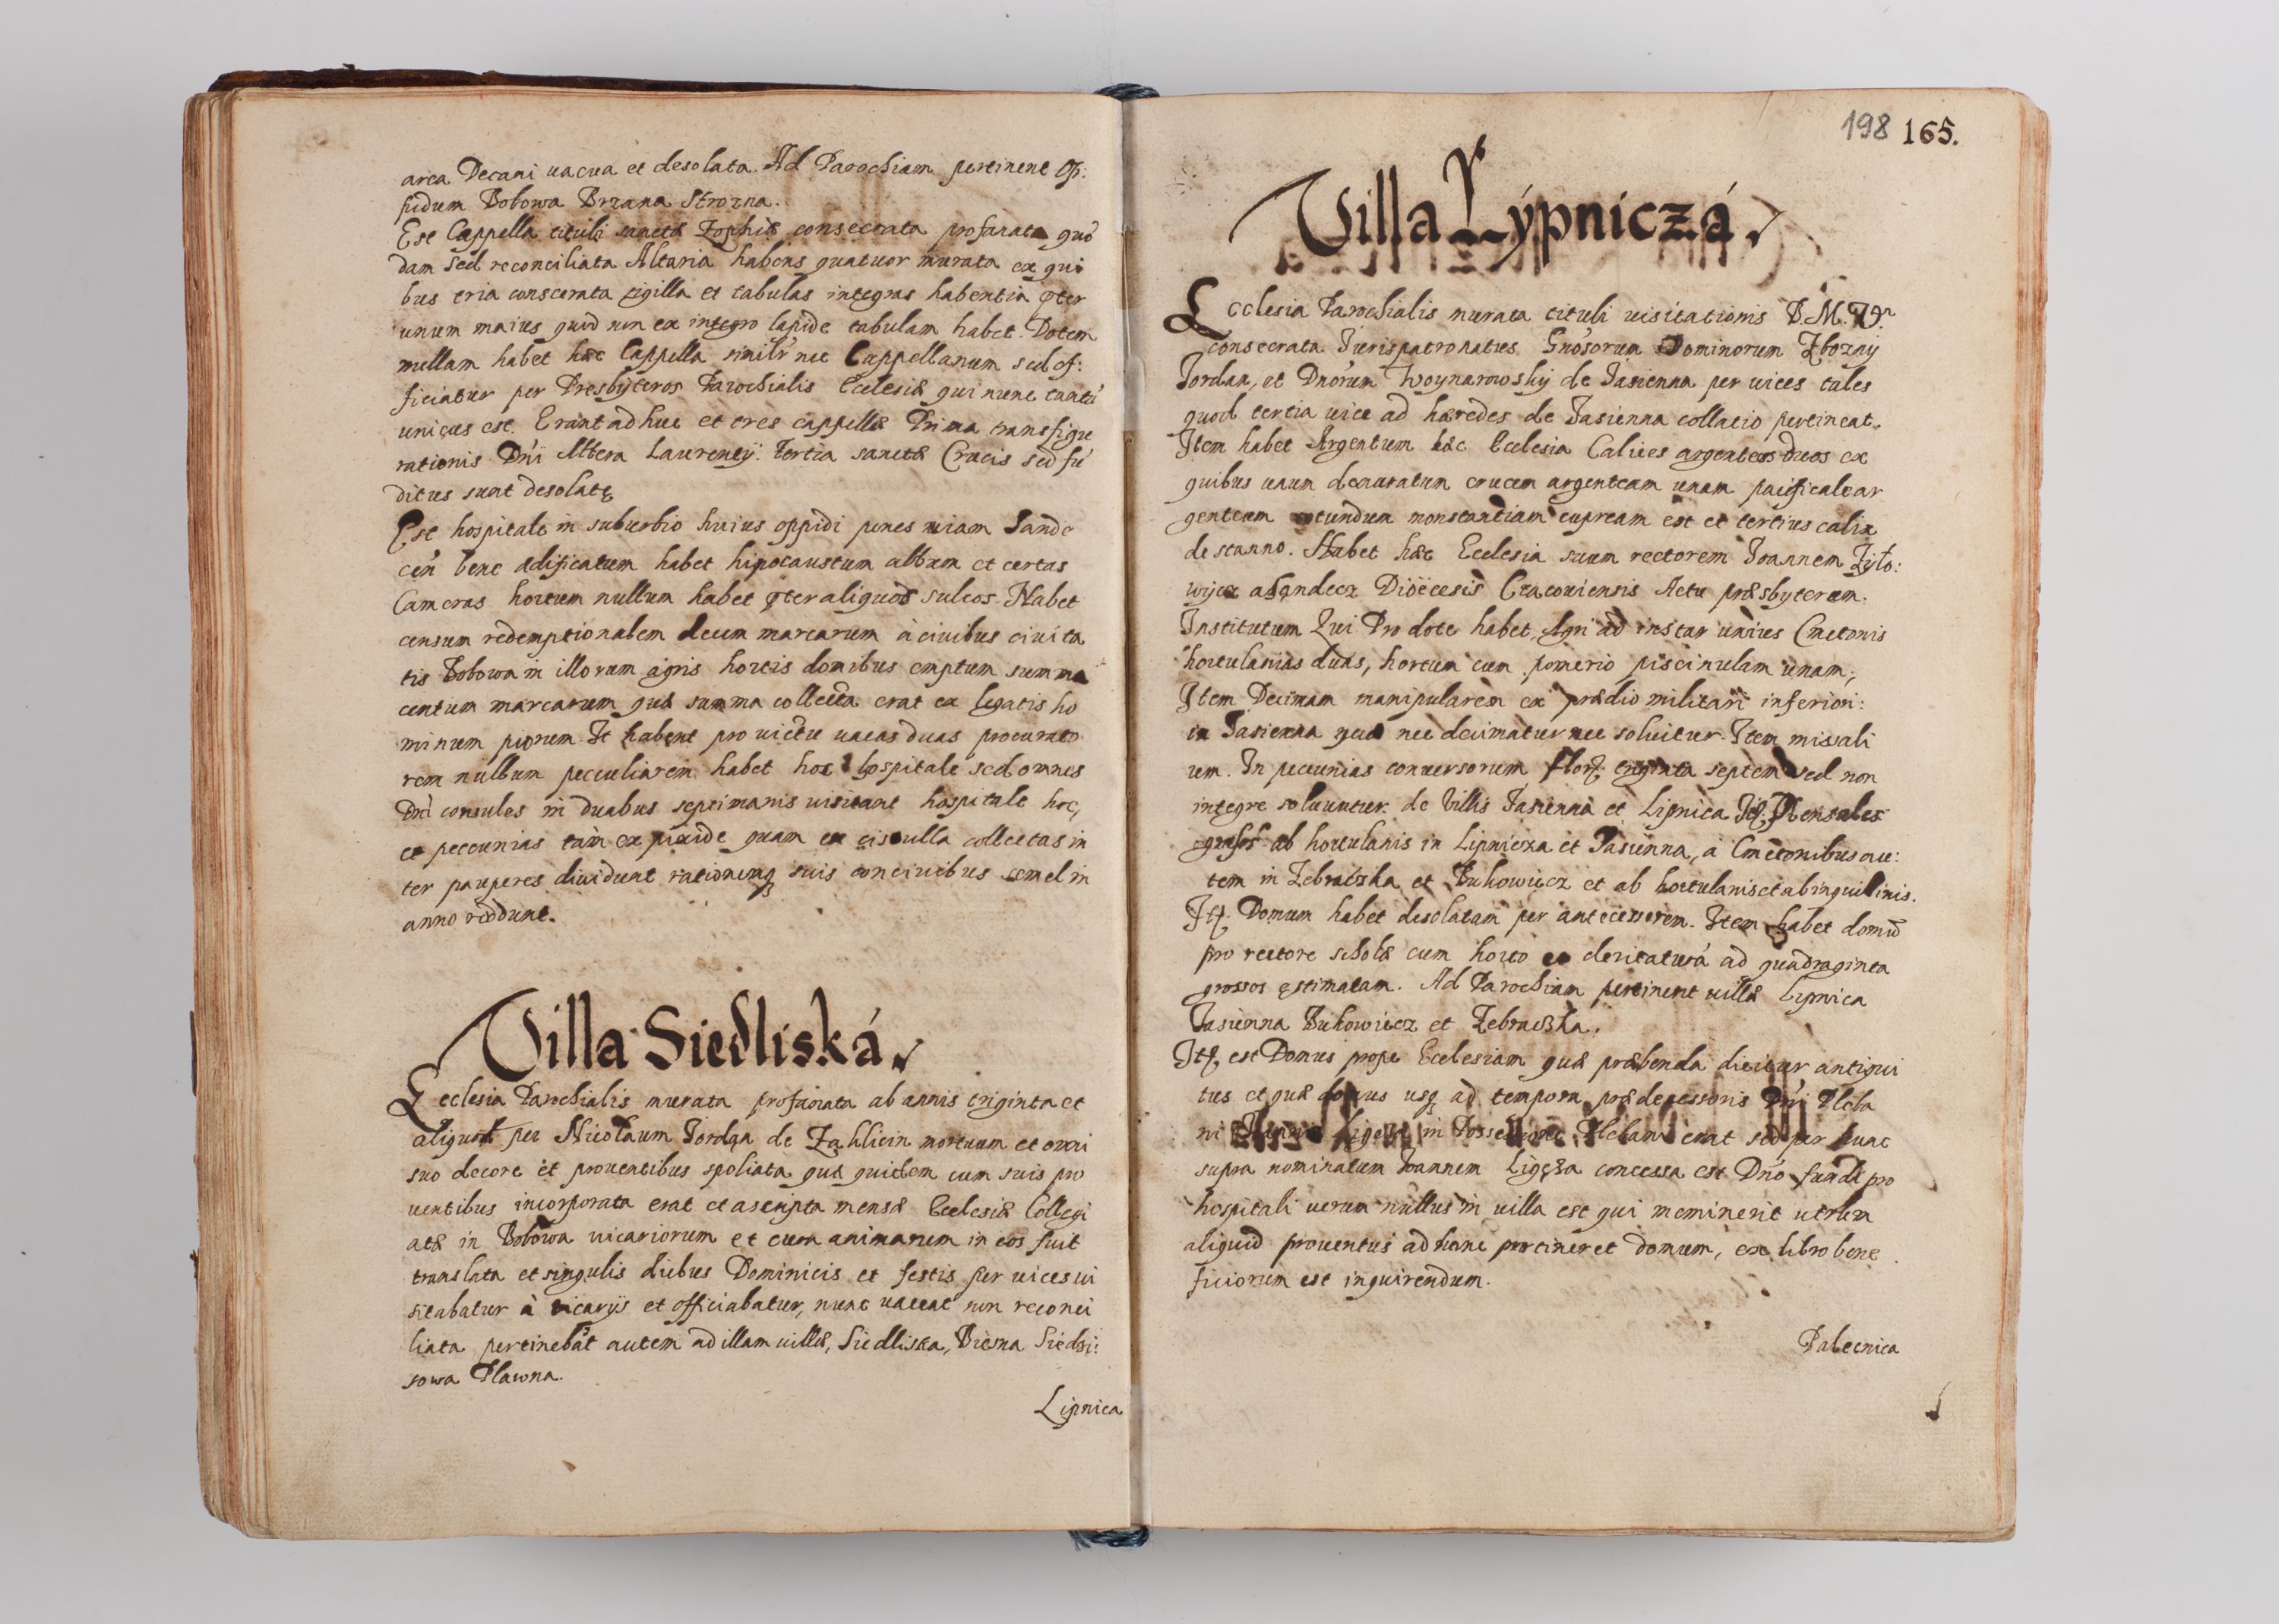 area Decani uacua et desolata. Ad Parochiam pertinent Op:
pidum Bobowa Brzana Strozna.
Est Cappella tituli sanctæ Zophiæ consecrata profanata quõ
dam sed reconciliata Altaria habens quatuor murata ex qui
bus tria conscerata sigilla et tabulas integras habentia p̃ter
unum maius quod non ex integro lapide tabulam habet. Dotem
nullam habet hæc Cappella similr̃ nec Cappellanum sed of:
ficiatur per Presbyteros Parochialis Ecclesiæ qui nunc tantũ
unicus est. Erant adhuc et tres cappellæ Prima transfigu
rationis Dñi Altera Laurentÿ. Tertia sanctæ Crucis sed fũ
ditus sunt desolatę
Est hospitale in suburbio huius oppidi penes uiam Sande
ceñ bene ædificatum habet hipocaustum album et certas
Cameras hortum nullum habet p̃ter aliquod sulcos. Habet
censum redemptionalem decem marcarum à ciuibus ciuita
tis Bobowa in illorum agris hortis domibus emptum summa
centum marcarum quæ summa collecta erat ex legatis ho
minum piorum. It habent pro uictu uacas duas procurato
rem nullum peculiarem habet hoc hospitale sed omnes
Dñi consules in duabus septimanis uisitant hospitale hoc,
et peccunias tàm ex pixide quam ex cistulla collectas in
ter pauperes diuidunt rationemq suis conciuibus semel in
anno reddunt.
Villa Siedliská.
Ecclesia Parochialis murata profanata ab annis triginta et
aliquot per Nicolaum Jordan de Zakliczin mortuum et omni
suo decore et prouentibus spoliata quæ quidem cum suis pro
uentibus incorporata erat et ascripta mensæ Ecclesiæ Collegi
atæ in Bobowa uicariorum et cura animarum in eos fuit
translata et singulis diebus Dominicis et festis per uices ui
sitabatur à uicarijs et officiabatur, nunc uaccat non reconci
liata pertinebãt autem ad illam uillæ, Siedliska, Biesna Siedzi:
sowa Plawna.
Lipnica
198 165.
Villa Lýpniczá.
Ecclesia Parochialis murata tituli uisitationis B. M. V.
consecrata Jurispatronatus Gñosorum Dominorum Zbozny
Jordan, et Dnõrum Woynarowsky de Jasienna per uices tales
quod tertia uice ad hæredes de Jasienna collatio pertineat.
Item habet Argentum hæc Ecclesia Calices argenteos duos ex
quibus unum deauratum crucem argenteam unam pacificale ar
genteum rotundum monstrantiam cupream est et tertius calix
de stanno. Habet hæc Ecclesia suum rectorem Joannem Zylo:
wycz a Sandecz Dioëcesis Cracouiensis Actu præsbyterum.
Institutum Qui Pro dote habet, Agri ad instar unius Cmetonis
hortulanias duas, hortum cum pomerio piscinulam unam,
Item Decimam manipularem ex prædio militari inferiori:
in Jasienna quæ nec decimatur nec soluitur. Item missali
um. In peccunias conuersorum flor. triginta septem sed non
integre soluuntur de Villis Jasienna et Lipnica It. Mensales
grossos ab hortulanis in Lipnicza et Jasienna, a Cmetonibus au:
tem in Zebraczka et Bukowiecz et ab hortulanis et ab inquilinis.
It. Domum habet desolatam per antecessorem. Item habet domũ
pro rectore scholæ cum horto ex deritaturá ad quadraginta
grossos ęstimatam. Ad Parochiam pertinent uillæ Lipnica
Jasienna Bukowiecz et Zebraczka.
It, est Domus prope Ecclesiam quæ præbenda dicitur antiqui
tus et quæ domus usq ad tempora prædecessoris Dñi Pleba
ni Joannis Ligęza in Possessione Plebani erat sed per hunc
supra nominatum Joannem Ligęza concessa est Dño fundi pro
hospitali uerum nullus in uilla est qui meminerit utrum
aliquid prouentus ad hanc pertineret domum, ex libro bene
ficiorum est inquirendum.
Palecnica